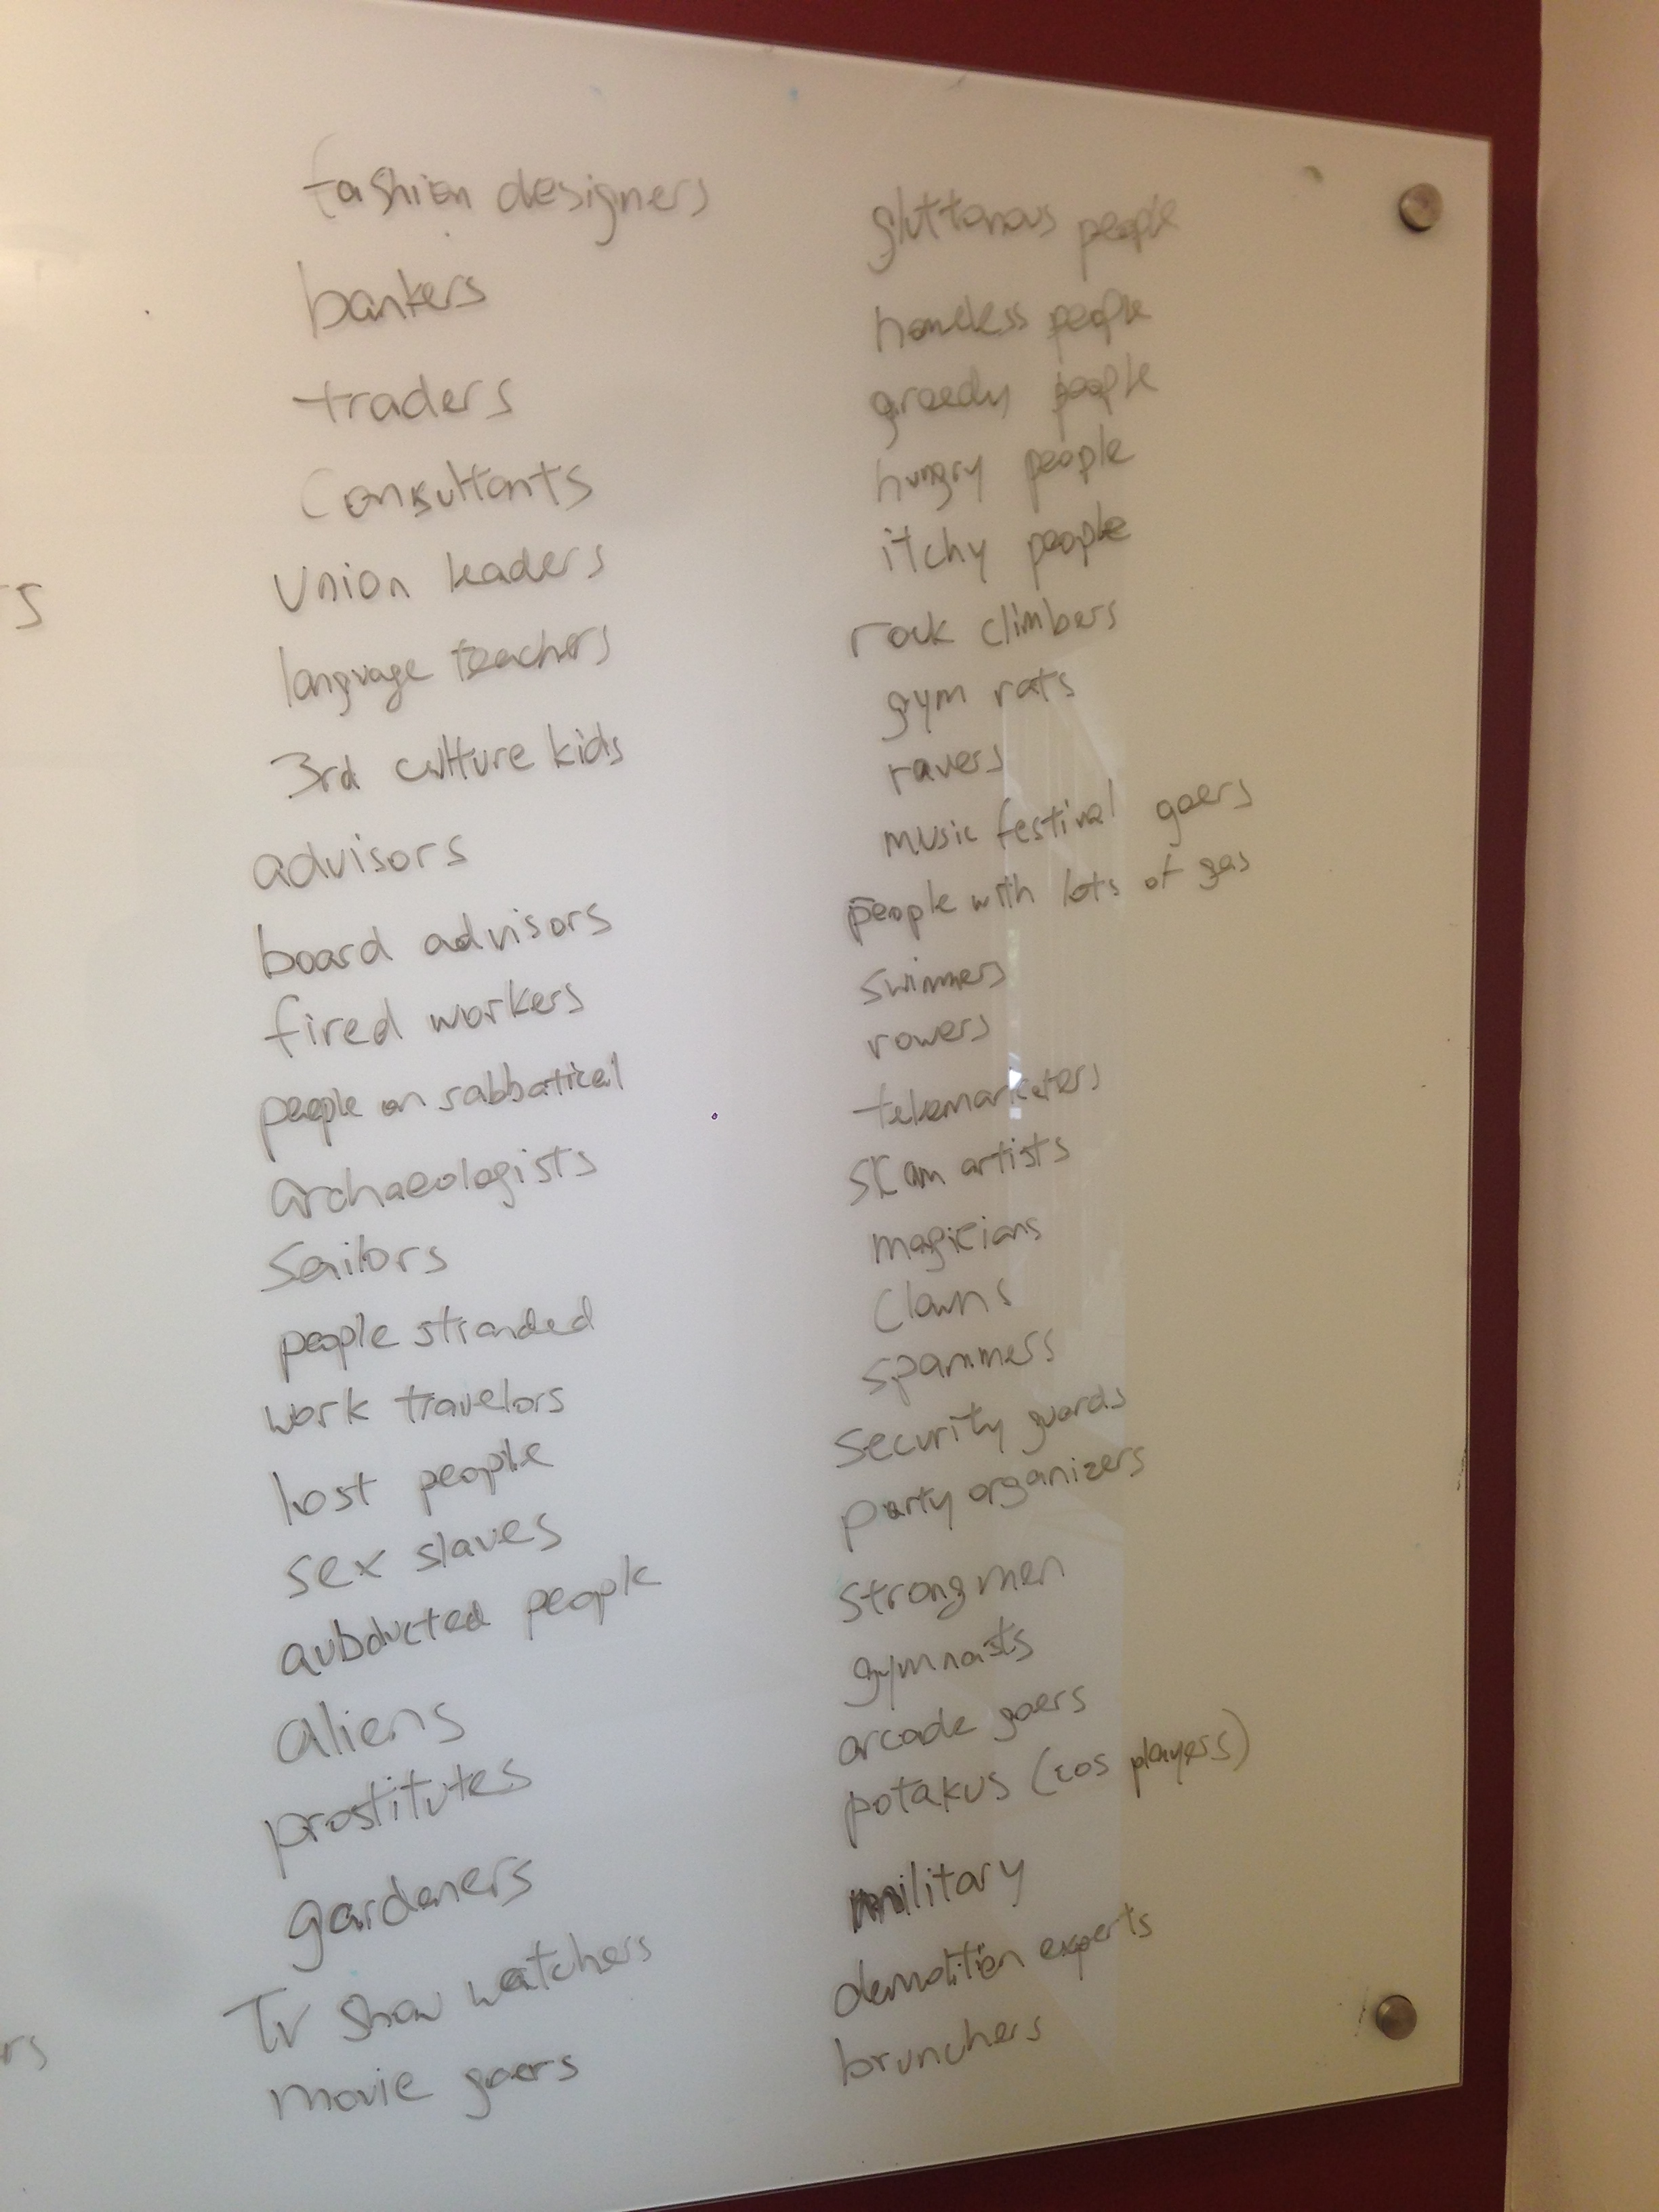 fashion designers
bankers
traders
Consultants
Union leaders
language teachers
3rd culture kids
advisors
board advisors
fired workers
people on sabbatical
archaeologists
Sailors
people stranded
work travelors
lost people
sex slaves
aubducted people
aliens
prostitutes
gardeners
TV show watchers
movie goers
gluttonous people
homeless people
greedy people
hungry people
itchy people
rock climbers
gym rats
ravers
music festival goers
people with lots of gas
swimmers
rowers
telemarketers
scam artists
magicians
Clowns
spammers
Security guards
party organizers
strongmen
gymnasts
arcade goers
potakus (cos players)
military
demolition experts
brunchers